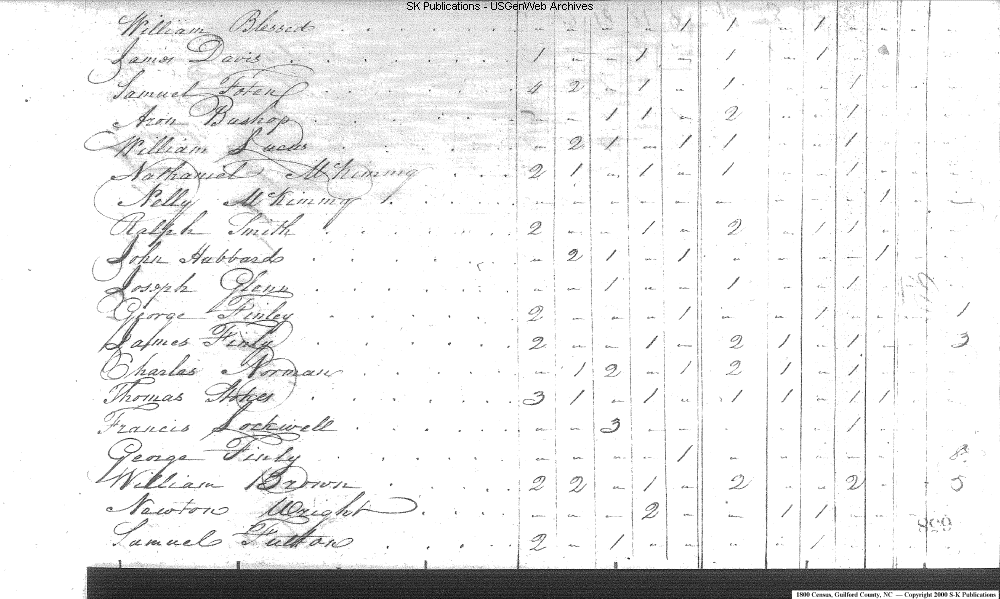 SK Publications - USGenWeb Archives
William Blessed - - - - 1 1 - 1 - -
James Davis 1 - - 1 - 1 - 1 - -
Samuel 4 2 - 1 - 1 - - 1 -
Aron Bushop - 1 1 - 2 - - 1 -
William Lucus - 2 1 - 1 1 - - 1 -
Nathaniel McKimmy 2 1 - 1 - 1 - - 1 -
Nelly McKimmy - - - - - - - - - 1 -
Ralph Smith 2 - - 1 - 2 - 1 1 -
John Hubbard - 2 1 - 1 - - - - 1
Joseph Glenn - - 1 - - 1 - - 1 -
George Finley 2 - - - 1 - - 1 - - 1
James Finly 2 - - 1 - 2 1 - 1 - 3
Charles Norman - 1 2 - 1 2 1 - 1
Thomas Stokes 3 1 - 1 - 1 1 - 1 1
Francis Lockwell - - 3 - - - - - 1 -
George Finly - - - - 1 - - - - - 8
William Brown 2 2 - 1 - 2 - - 2 - 5
Newton Wright - - - 2 - - 1 1 - -
Samuel Fulton 2 - 1 - - - - 1 - -
1800 Census, Guilford County, NC — Copyright 2000 S-K Publications